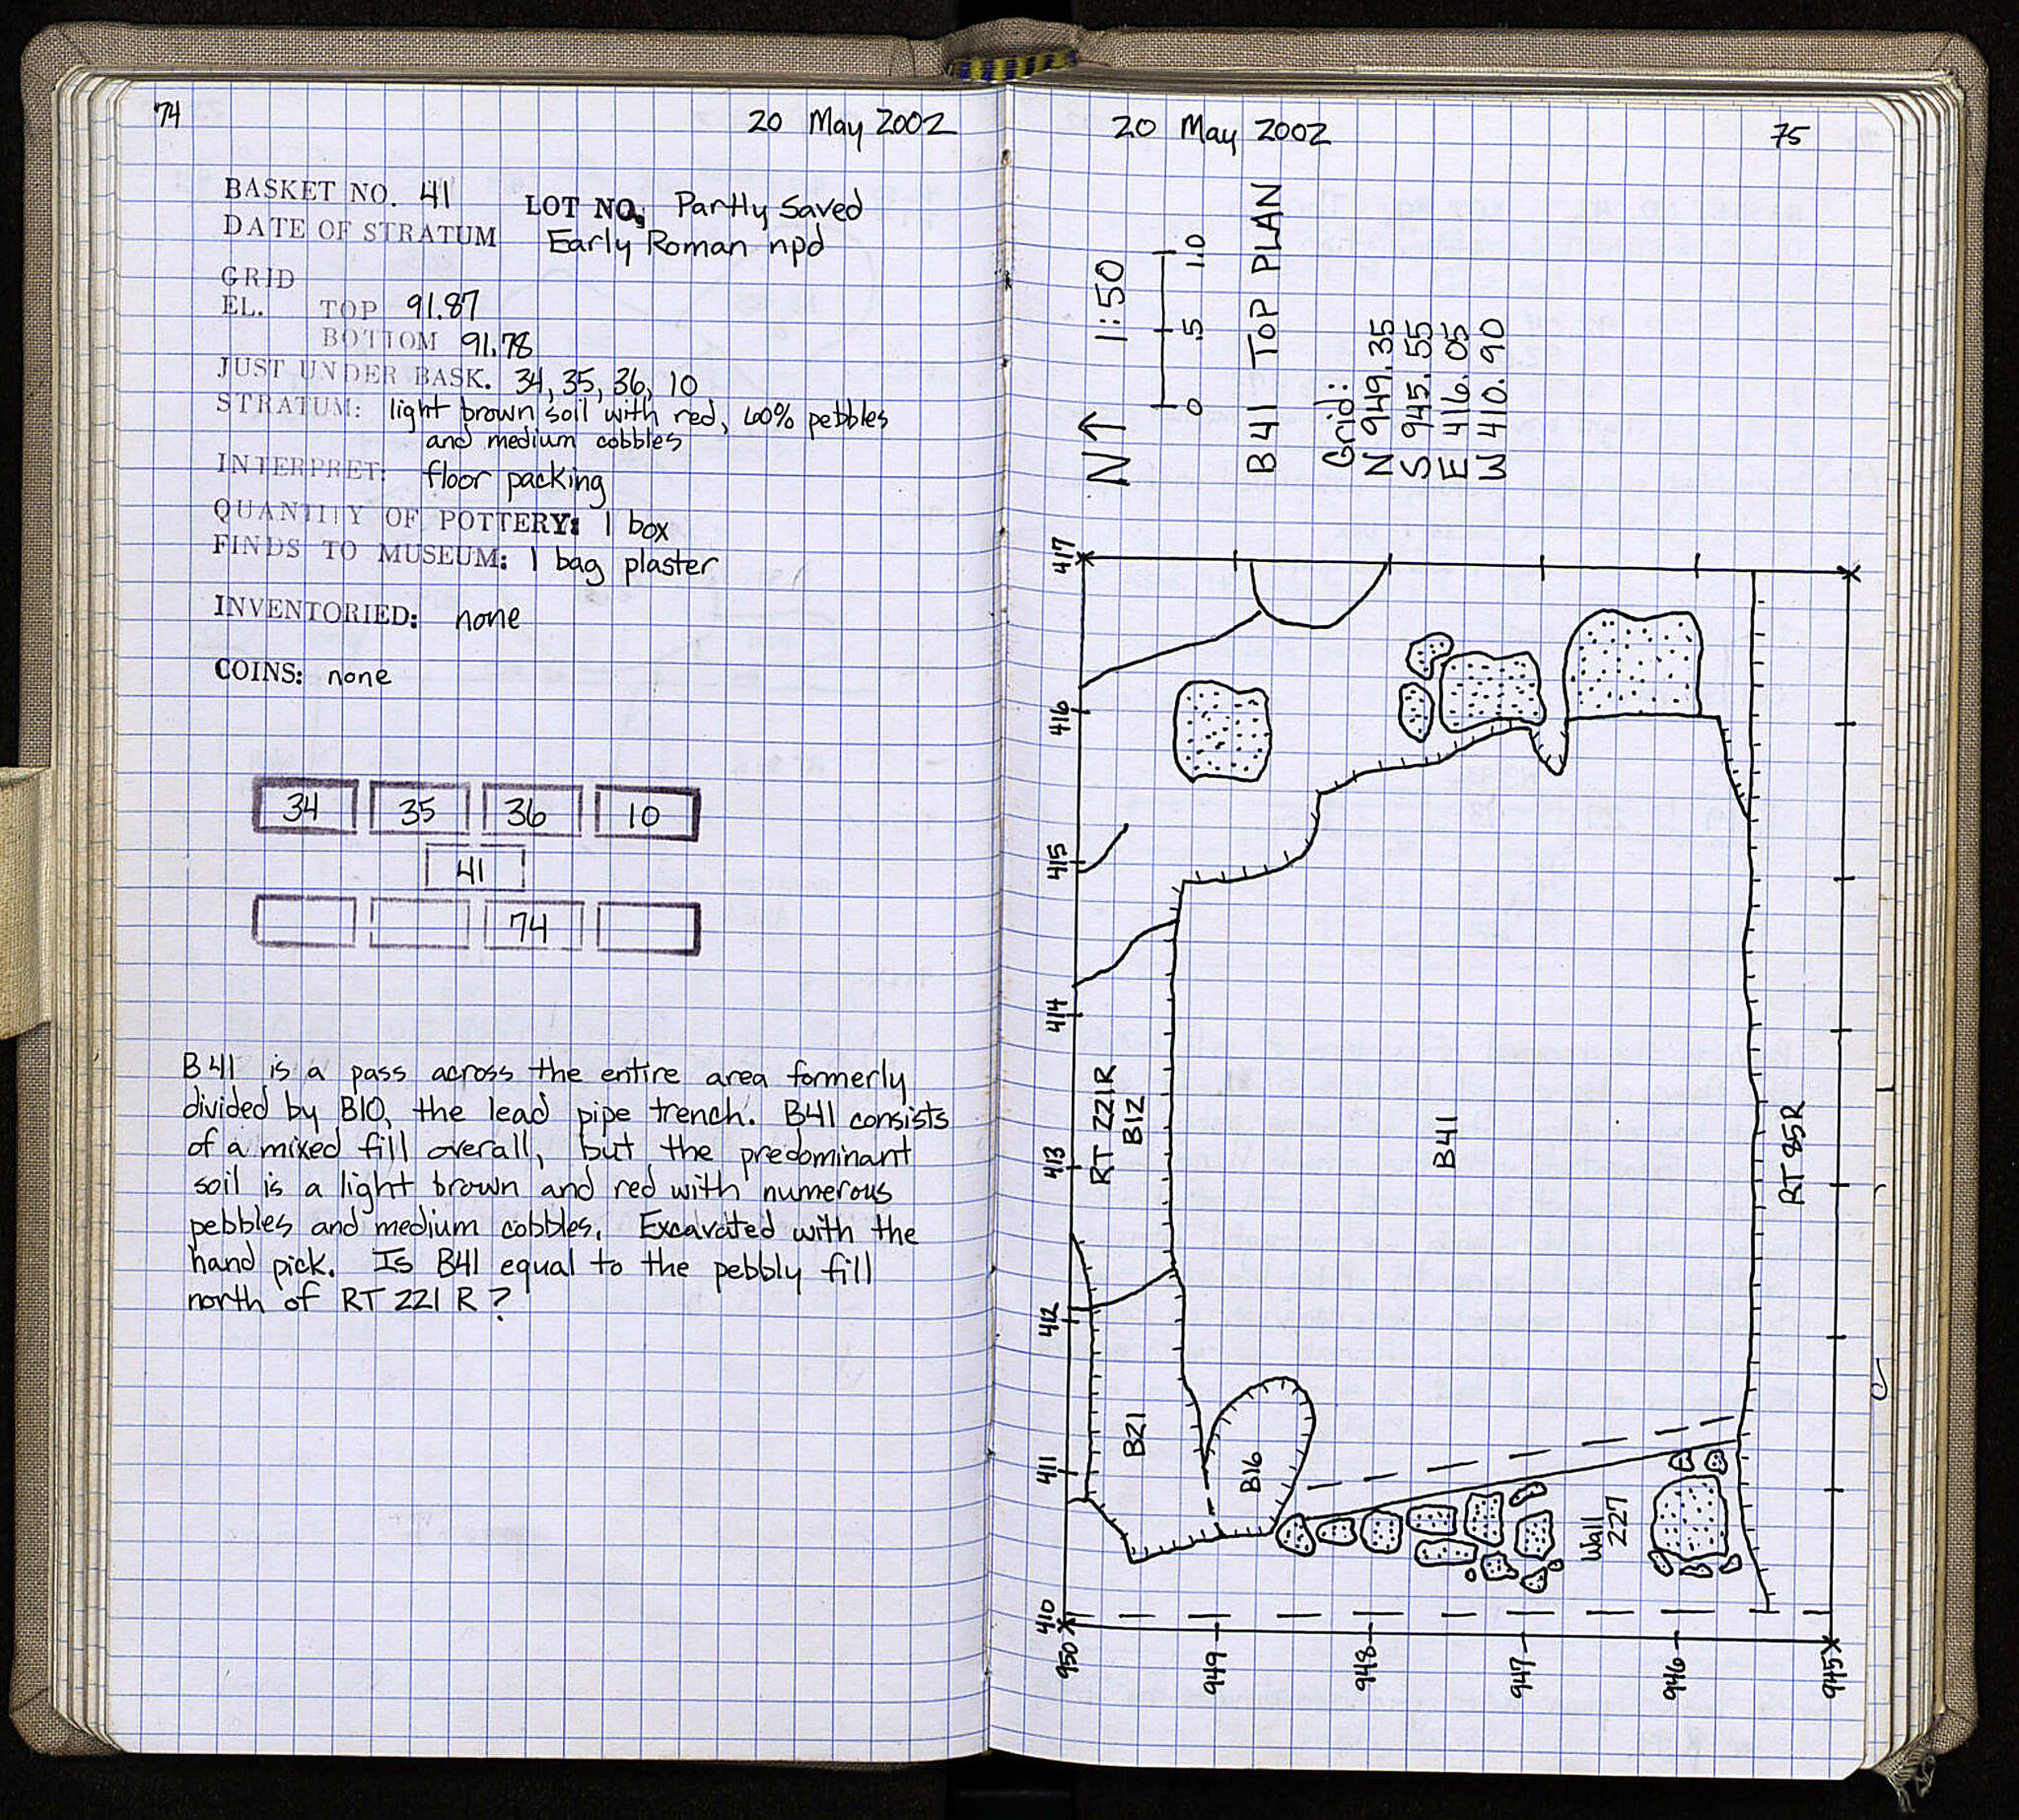 74
20 May 2002
BASKET NO. 41 LOT NO. Partly Saved
DATE OF STRATUM Early Roman npd
GRID
EL. TOP 91.87
BOTTOM 91.78
JUST UNDER BASK. 34, 35, 36, 10
STRATUM: light brown soil with red, 60% pebbles
and medium cobbles
INTERPRET: floor packing
QUANTITY OF POTTERY: 1 box
FINDS TO MUSEUM: 1 bag plaster
INVENTORIED: none
COINS: none
34 35 36 10
41
74
B41 is a pass across the entire area formerly
divided by B10, the lead pipe trench. B41 consists
of a mixed fill overall, but the predominant
soil is a light brown and red with numerous
pebbles and medium cobbles. Excavated with the
hand pick. Is B41 equal to the pebbly fill
north of RT 221 R?
20 May 2002
75
N ↑ 1:50
0 .5 1.0
B41 TOP PLAN
Grid:
N 949.35
S 945.55
E 416.05
W 410.90
417
416
415
414
413
412
411
410
RT 221R
B12
B41
RT 85R
B21
B16
Wall
227
950
949
948
947
946
945